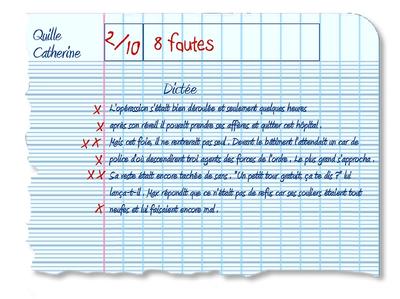 Quille
Catherine
2/10
8 fautes
Dictée
x L'opérassion s'était bien déroulée et seulement quelques heures
x après son réveil il pouvait prendre ses affères et quitter cet hôpital.
x x Mais cet foie, il ne rentrerait pas seul. Devant le bâtiment l'attendait un car de
x police d'où descendirent troi agents des forces de l'ordre. Le plus grand s'approcha.
x x Sa veste était encore tachée de sans. "Un petit tour gratuit, ça te dis ?" lui
lança-t-il. Max répondit que ce n'était pas de refis car ses souliers étaient tout
x neufes et lui faisaient encore mal.